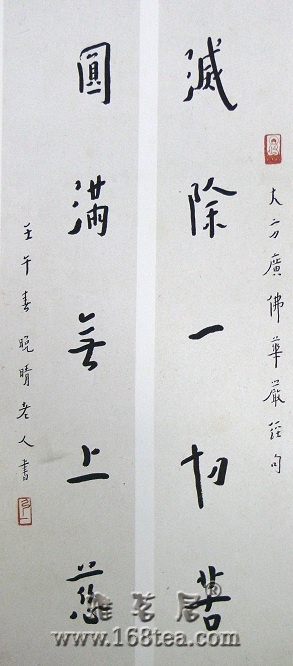 大方廣佛華嚴經句
滅除一切苦
圓滿無上慈
壬午春晚晴老人書
雅茗居®
www.168tea.com